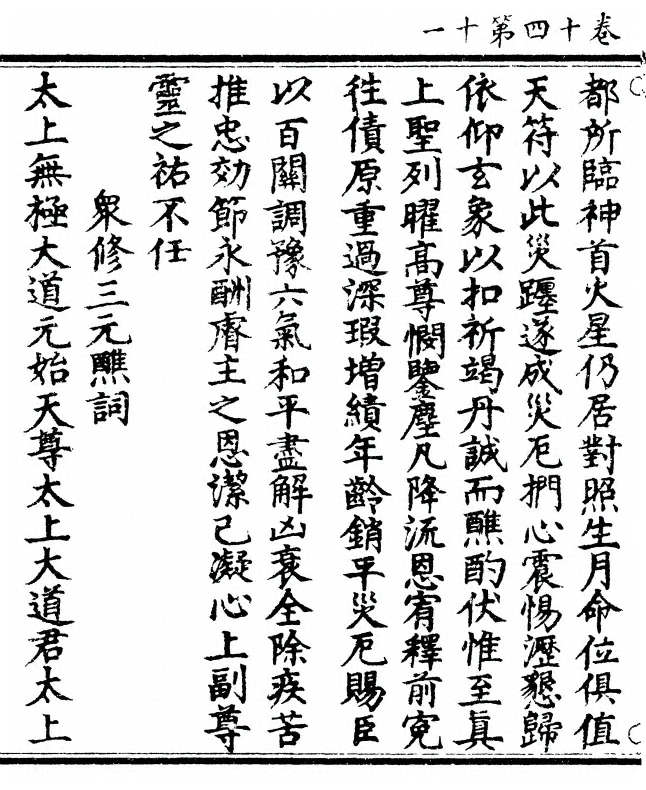 卷十四第十一
都所臨神首火星仍居對照生月命位俱值
天符以此災躔遂成災厄捫心震惕瀝懇歸
依仰玄象以扣祈竭丹誠而醮酌伏惟至真
上聖列曜高尊憫鑒塵凡降流恩宥釋前寃
往債原重過深瑕增績年齡銷平災厄賜臣
以百關調豫六氣和平盡解凶衰全除疾苦
推忠効節永酬睿主之恩潔己凝心上副尊
靈之祐不任
衆修三元醮詞
太上無極大道元始天尊太上大道君太上